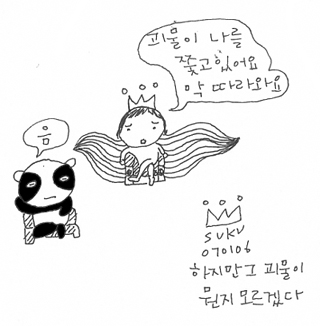 괴물이 나를
쫓고있어요
막 따라와요
음
suku
070106
하지만 그 괴물이
뭔지 모르겠다